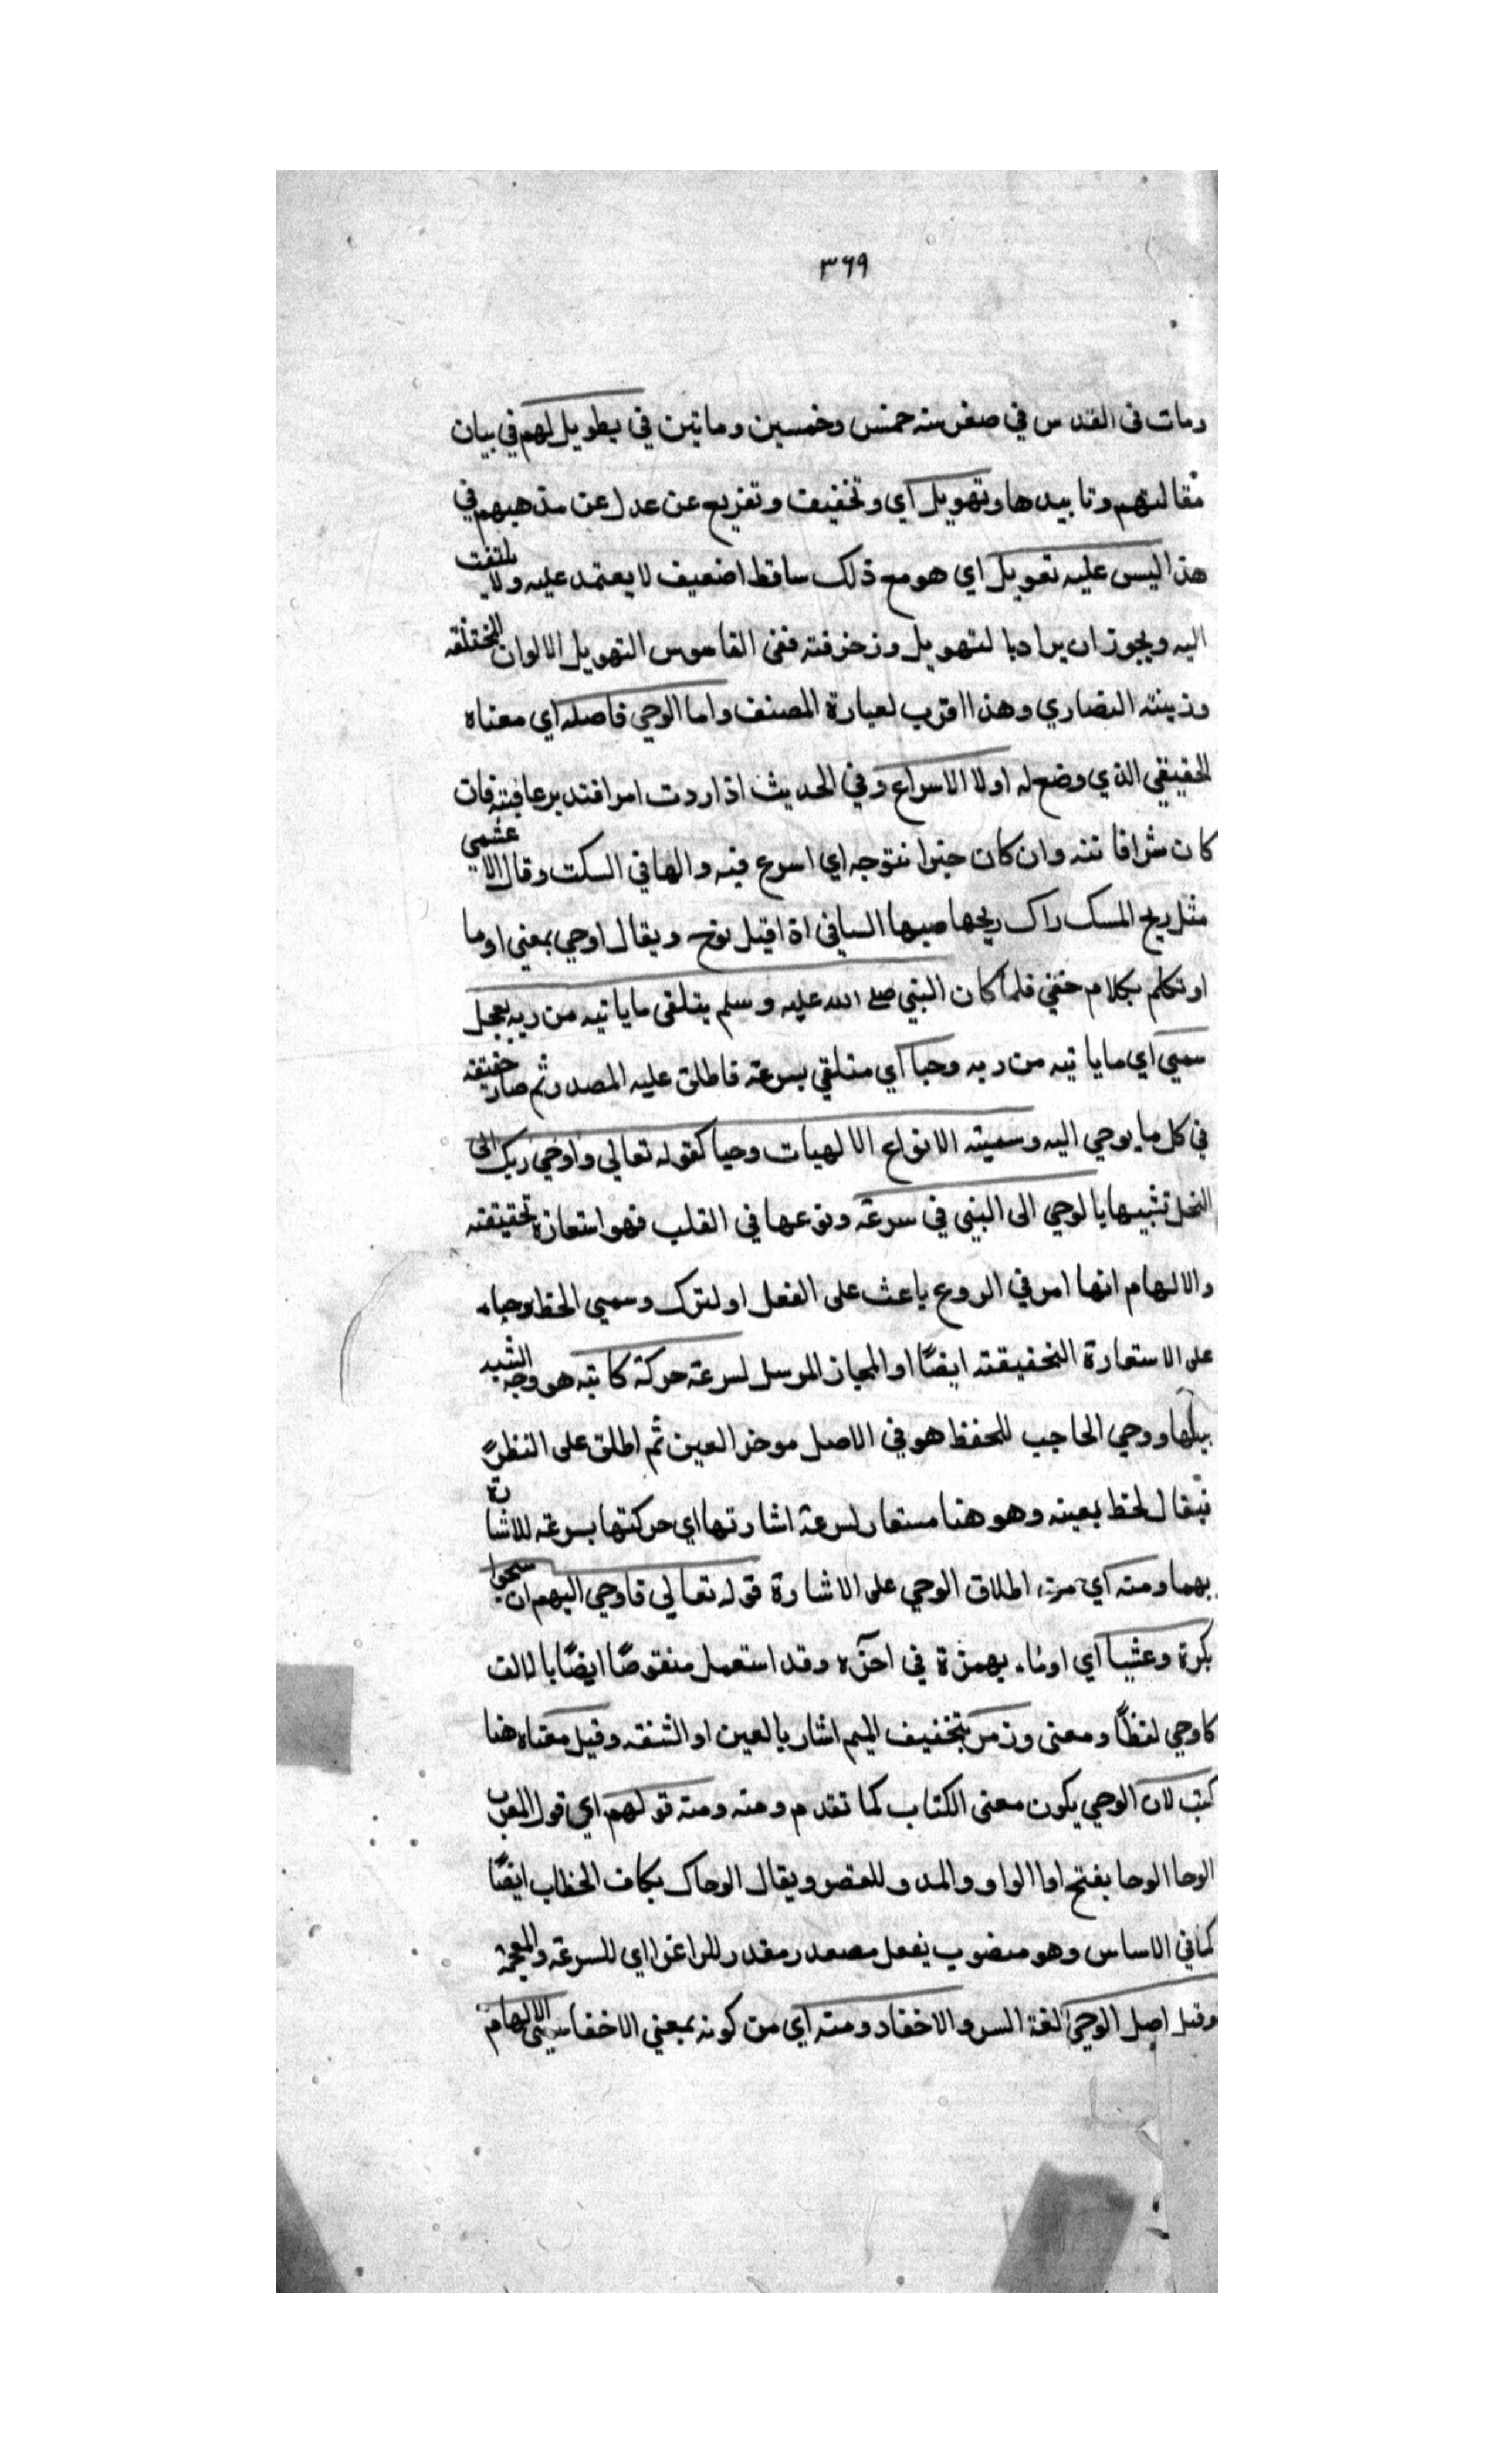 ٣٦٩
ومات فى القدس في صفر سنه خمس وخمسين وماتين في تطويل لهم في بيان
مقالتهم وتاييدها وتهويل اي وتخفيف وتفزيع عن عدل عن مذهبهم في
هذا ليس عليه تعويل اي هو مع ذلك ساقط اضعيف لا يعتمد عليه ولا يلتفت
اليه ويجوز ان يراد بالتهويل وزخرفته ففى القاموس التهويل الالوان المختلفه
وزينته النصاري وهذا اقرب لعبارة المصنف واما الوحي فاصله اي معناه
الحقيقي الذي وضع له اولا الاسراع وفي الحديث اذا اردت امرا فتدبر عاقبته فان
كان شرا فانته وان كان خيرا فتوجه اي اسرع فيه والها في السكت وقال الاعشمي
مثل ريح المسك راك ريحها صبها الساقي اذا قيل توح ويقال اوحي بمعني اوما
او تكلم بكلام خفي فلما كان النبي صلى الله عليه وسلم يتلقى ما ياتيه من ربه بعجل
سمي اي ما ياتيه من ربه وحيا اي متلقي بسرعة فاطلق عليه المصدر ثم صار حقيقه
في كل ما يوحي اليه وسميته الانواع الالهيات وحيا كقوله تعالي واوحي ربك الى
النحل تشبيها بالوحي الى النبي في سرعة وقوعها في القلب فهو استعارة تحقيقته
والالهام انها امر في الروع باعث على الفعل او لترك وسمي الخط وحياء
على الاستعارة التحقيقته ايضًا او المجاز المرسل لسرعة حركة كاتبه هو وجه الشبه
بيلها ووحي الحاجب للحفظ هو في الاصل موخر العين ثم اطلق على النظر
فيقال لحظ بعينه وهو هنا مستعار لسرعة اشارتها اي حركتها بسرعة للاشارة
بهما ومنه اي من اطلاق الوحي على الاشارة قوله تعالي فاوحي اليهم ان سبحوا
بكرة وعشيا اي اوماء بهمزة في اخره وقد استعمل منقوصًا ايضًا بالالف
كاوحي لفظًا ومعنى ورمز بتخفيف الميم اشار بالعين او الشفه وقيل معناه هنا
كتب لان الوحي يكون معنى الكتاب كما تقدم ومنه ومنه قولهم اي قول العرب
الوحا الوحا بفتح اوا الواو والمد وللقصر ويقال الوحاك بكاف الخطاب ايضًا
كما في الاساس وهو منصوب بفعل مصعدر مقدر للراغرا اي للسرعة والعجمة
وقيل اصل الوحي لغة السر والاخفاد ومنه اي من كونه بمعني الاخفا سمي الالهام